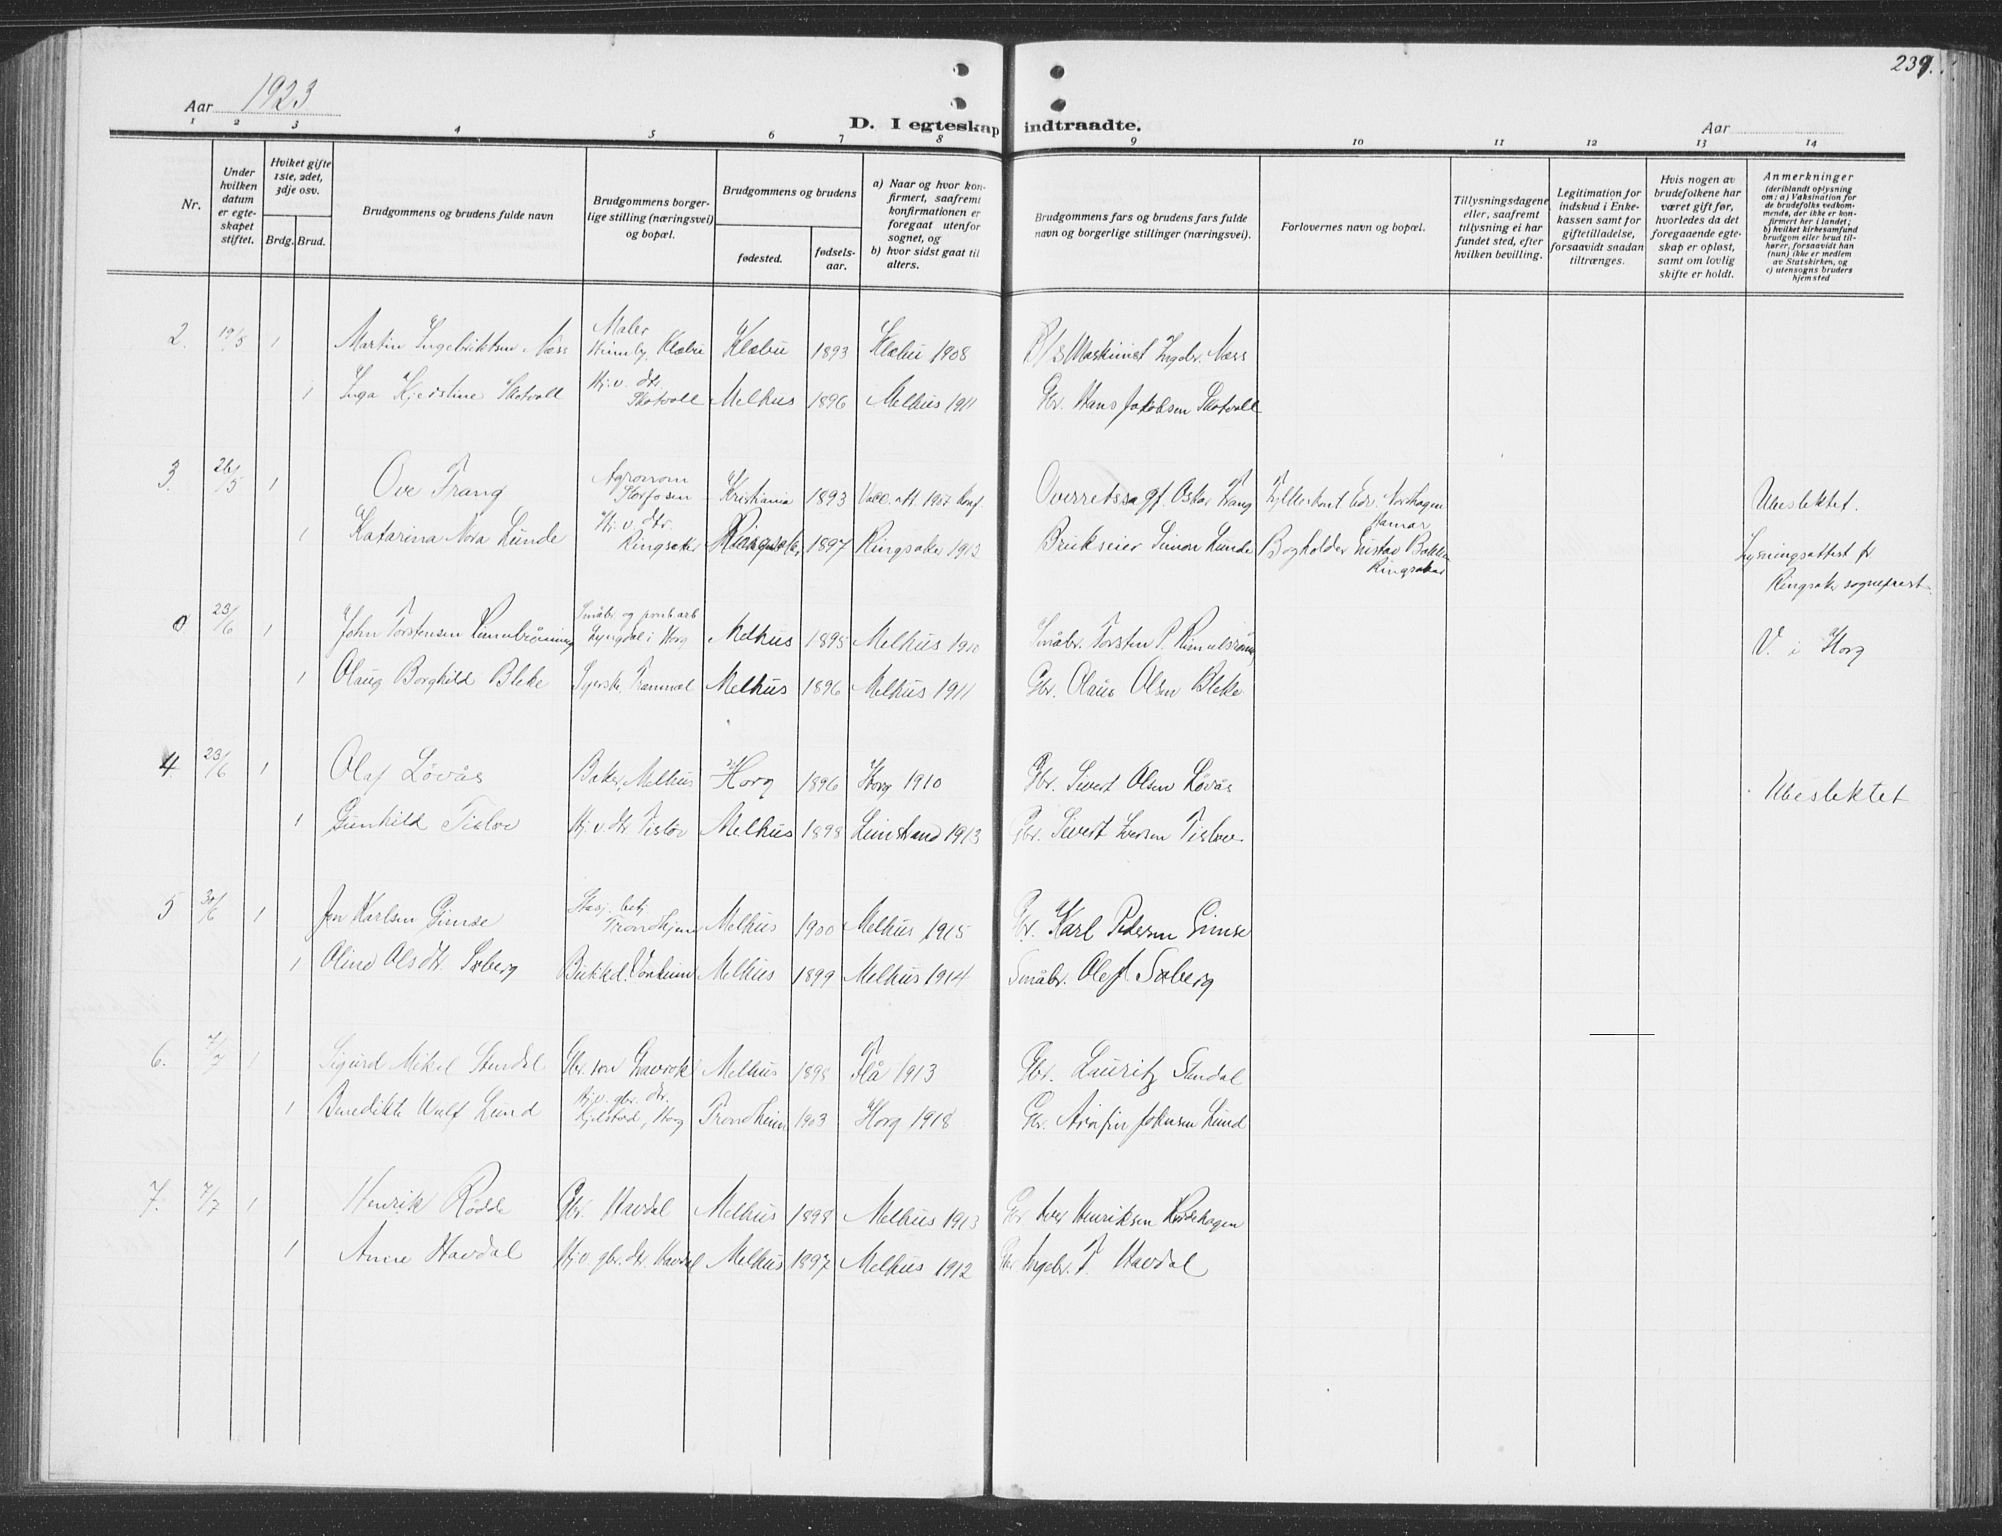 239.
Aar 1923
D. I egteskap indtraadte.
Aar
1 2 3 4 5 6 7 8 9 10 11 12 13 14
Nr.
Under hvilken datum er egteskapet stiftet.
Hvilket gifte 1ste, 2det, 3dje osv.
Brdg. Brud.
Brudgommens og brudens fulde navn
Brudgommens borgerlige stilling (næringsvei) og bopæl.
Brudgommens og brudens
fødested.
fødselsaar.
a) Naar og hvor konfirmert, saafremt konfirmationen er foregaat utenfor sognet, og
b) hvor sidst gaat til alters.
Brudgommens fars og brudens fars fulde navn og borgerlige stillinger (næringsvei).
Forlovernes navn og bopæl.
Tillysningsdagene eller, saafremt tillysning ei har fundet sted, efter hvilken bevilling.
Legitimation for indskud i Enkekassen samt for giftetilladelse, forsaavidt saadan tiltrænges.
Hvis nogen av brudefolkene har været gift før, hvorledes da det foregaaende egteskap er opløst, samt om lovlig skifte er holdt.
Anmerkninger
(deriblandt oplysning om: a) Vaksination for de brudefolks vedkommende, der ikke er konfirmert her i landet; b) hvilket kirkesamfund brudgom eller brud tilhører, forsaavidt han (hun) ikke er medlem av Statskirken, og c) utensogns bruders hjemsted
2. 19/5 1 Martin Ingebriktsen Næss Maler Klæbu Klæbu 1893 Klæbu 1908 Maskinist Ingebr. Næss
1 Inga Kjerstine Skotvoll Hj.v. dtr. Skotvoll Melhus 1896 Melhus 1911 Gbr. Hans Jakobsen Skotvoll
3. 26/5 1 Ove Trang Agronom Storfosen Kristiania 1893 Oskar Trang Hamar Ubeslektet.
1 Katarina Nora Lunde Hj.v. dtr. Ringsaker Ringsaker 1897 Ringsaker 1912 Brukseier Simon Lunde Bogholder Gustav Ringsaker Lysningsattest fr Ringsaker sogneprest
0 23/6 1 John Torstensen Småbr. og Lyngdal i Horg Melhus 1895 Melhus 1910 Småbr. Torsten P. V. i Horg
1 Olaug Borghild Bleke Syerske, Melhus 1896 Melhus 1911 Gbr. Olaus Olsen Bleke
4 23/6 1 Olaf Løvås Baker, Melhus Horg 1896 Horg 1910 Gbr. Sivert Olsen Løvås Ubeslektet
1 Gunhild Tisløv Hj.v. dtr Tisløv Melhus 1898 Leinstrand 1913 Gbr. Sivert Iversen Tisløv
5 30/6 1 Jon Karlsen Gimse Trondhjem Melhus 1900 Melhus 1915 Gbr. Karl Pedersen Gimse
1 Oline Olsdtr. Søberg Melhus 1899 Melhus 1914 Småbr. Ole Søberg
6. 7/7 1 Sigurd Mikal Stendal Gbr. søn Gravrok Melhus 1898 Flå 1913 Gbr. Lauritz Stendal
1 Benedikte Wulf Lund Hj.v. gbr. dtr. Kjelstad, Horg Trondheim 1903 Horg 1918 Gbr. Arnfin Johnsen Lund
7. 7/7 1 Henrik Rødde Gbr. Havdal Melhus 1898 Melhus 1913 Gbr Iver Henriksen Røddehagen
1 Anne Havdal Hj.v. gbr. dtr. Havdal Melhus 1897 Melhus 1912 Gbr Ingebr. T. Havdal